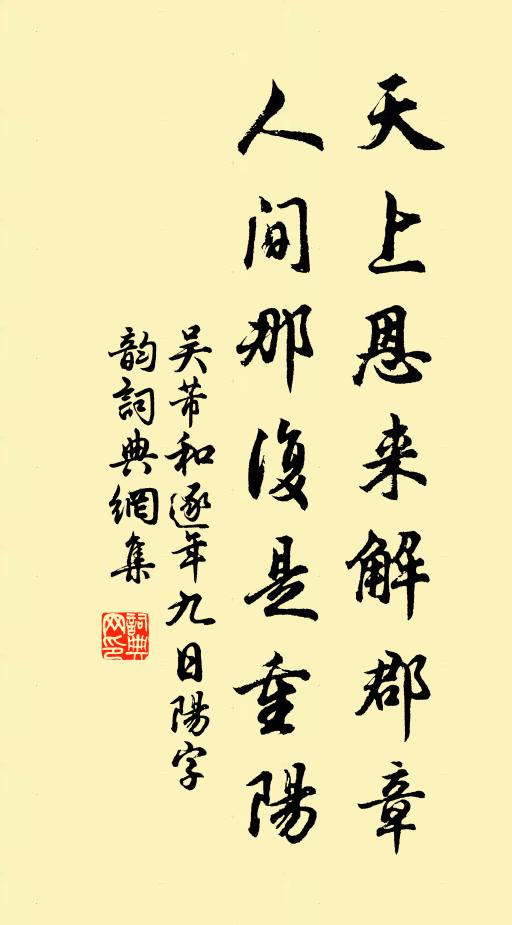 天上恩来解郡章
人间那復是重陽
吴芾和逐年九日陽字
韵詞典網集
詞典网印